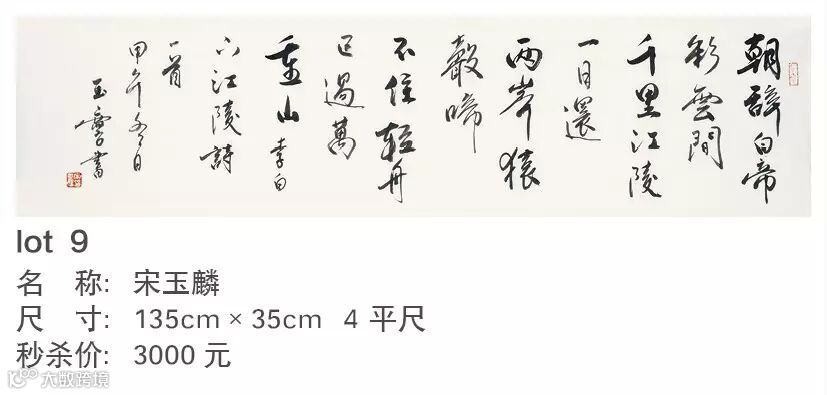 朝辭白帝
彩雲間
千里江陵
一日還
兩岸猿
聲啼
不住輕舟
已過萬
重山 李白
下江陵詩
一首
甲午冬日
玉麐書
lot 9
名 称: 宋玉麟
尺 寸: 135cm×35cm 4 平尺
秒杀价: 3000 元
大数跨境